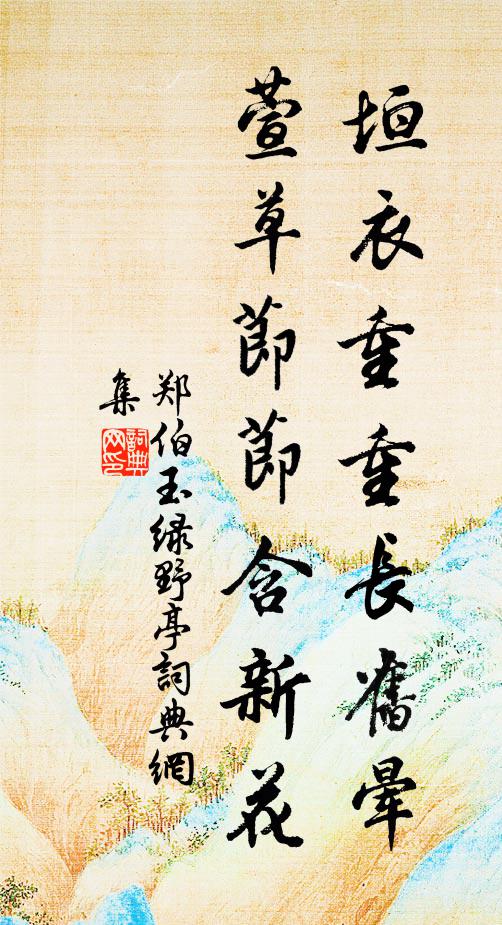 垣衣重重長舊暈
萱草節節含新花
郑伯玉绿野亭詞典網
集
詞典網印